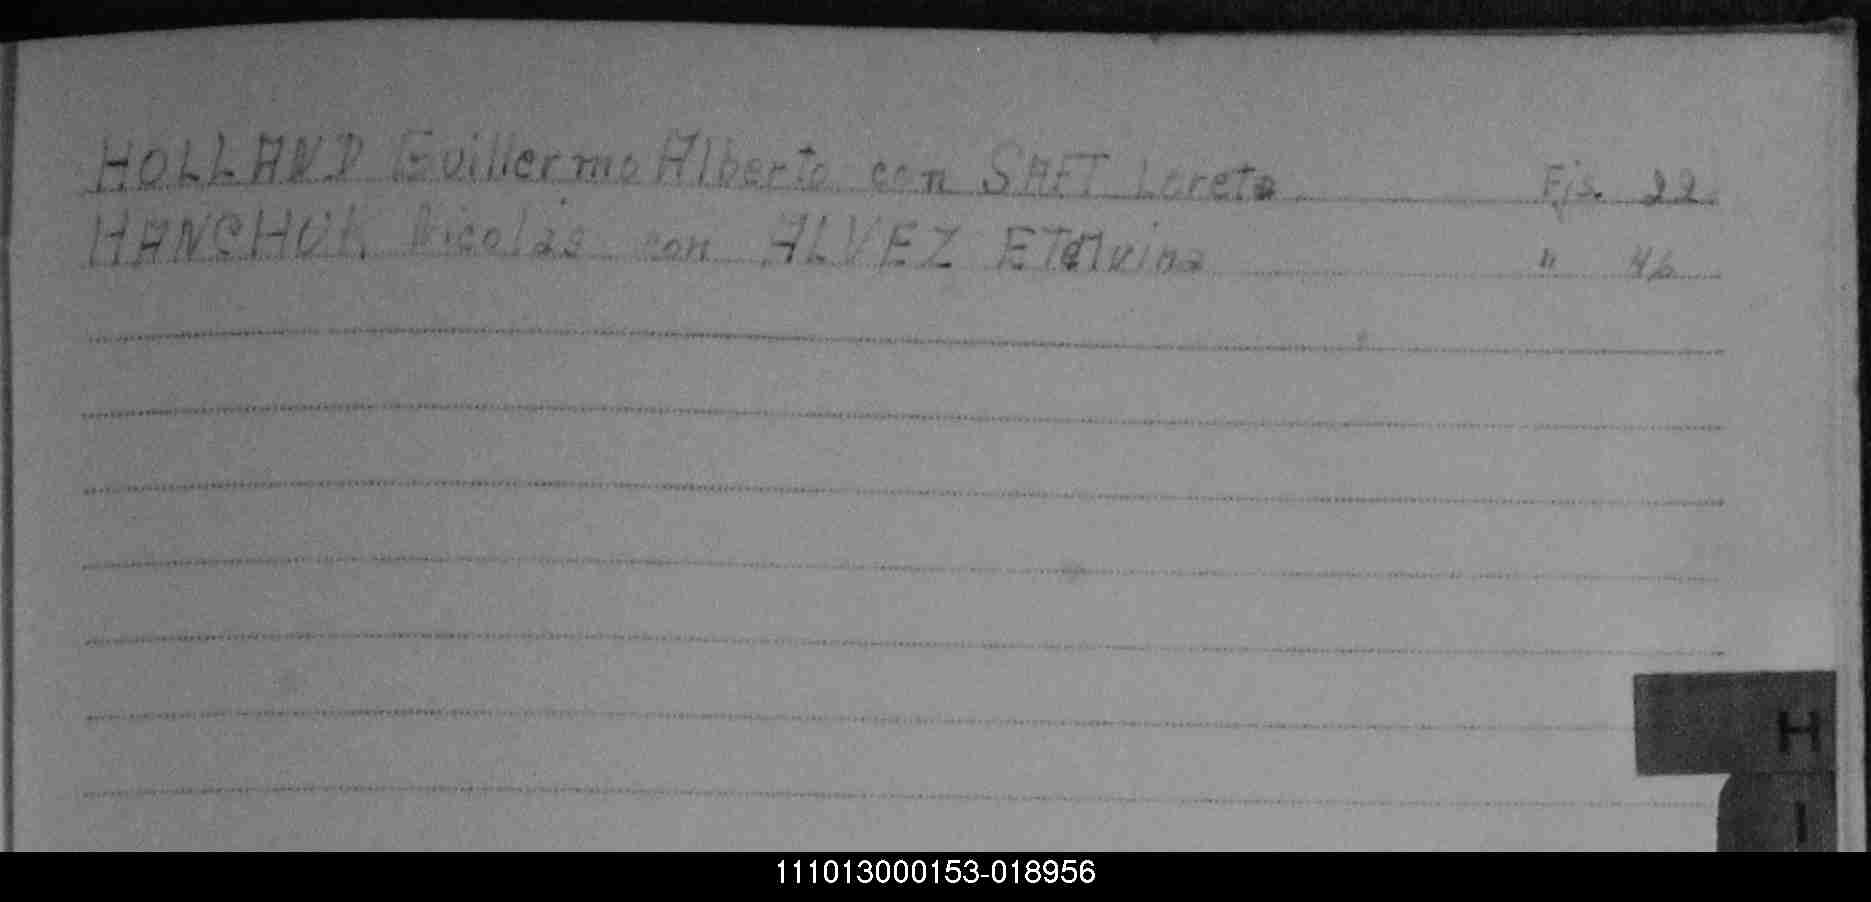 HOLLAND Guillermo Alberto con SAFT Loreta Fjs. 22.
HANSHUK Nicolás con ALVEZ ETelvina " 46
H
I
111013000153-018956